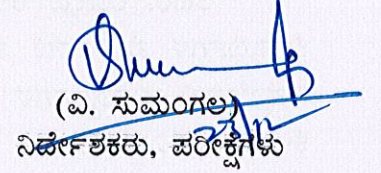 (ವಿ. ಸುಮಂಗಲ)
23/12
ನಿರ್ದೇಶಕರು, ಪರೀಕ್ಷೆಗಳು